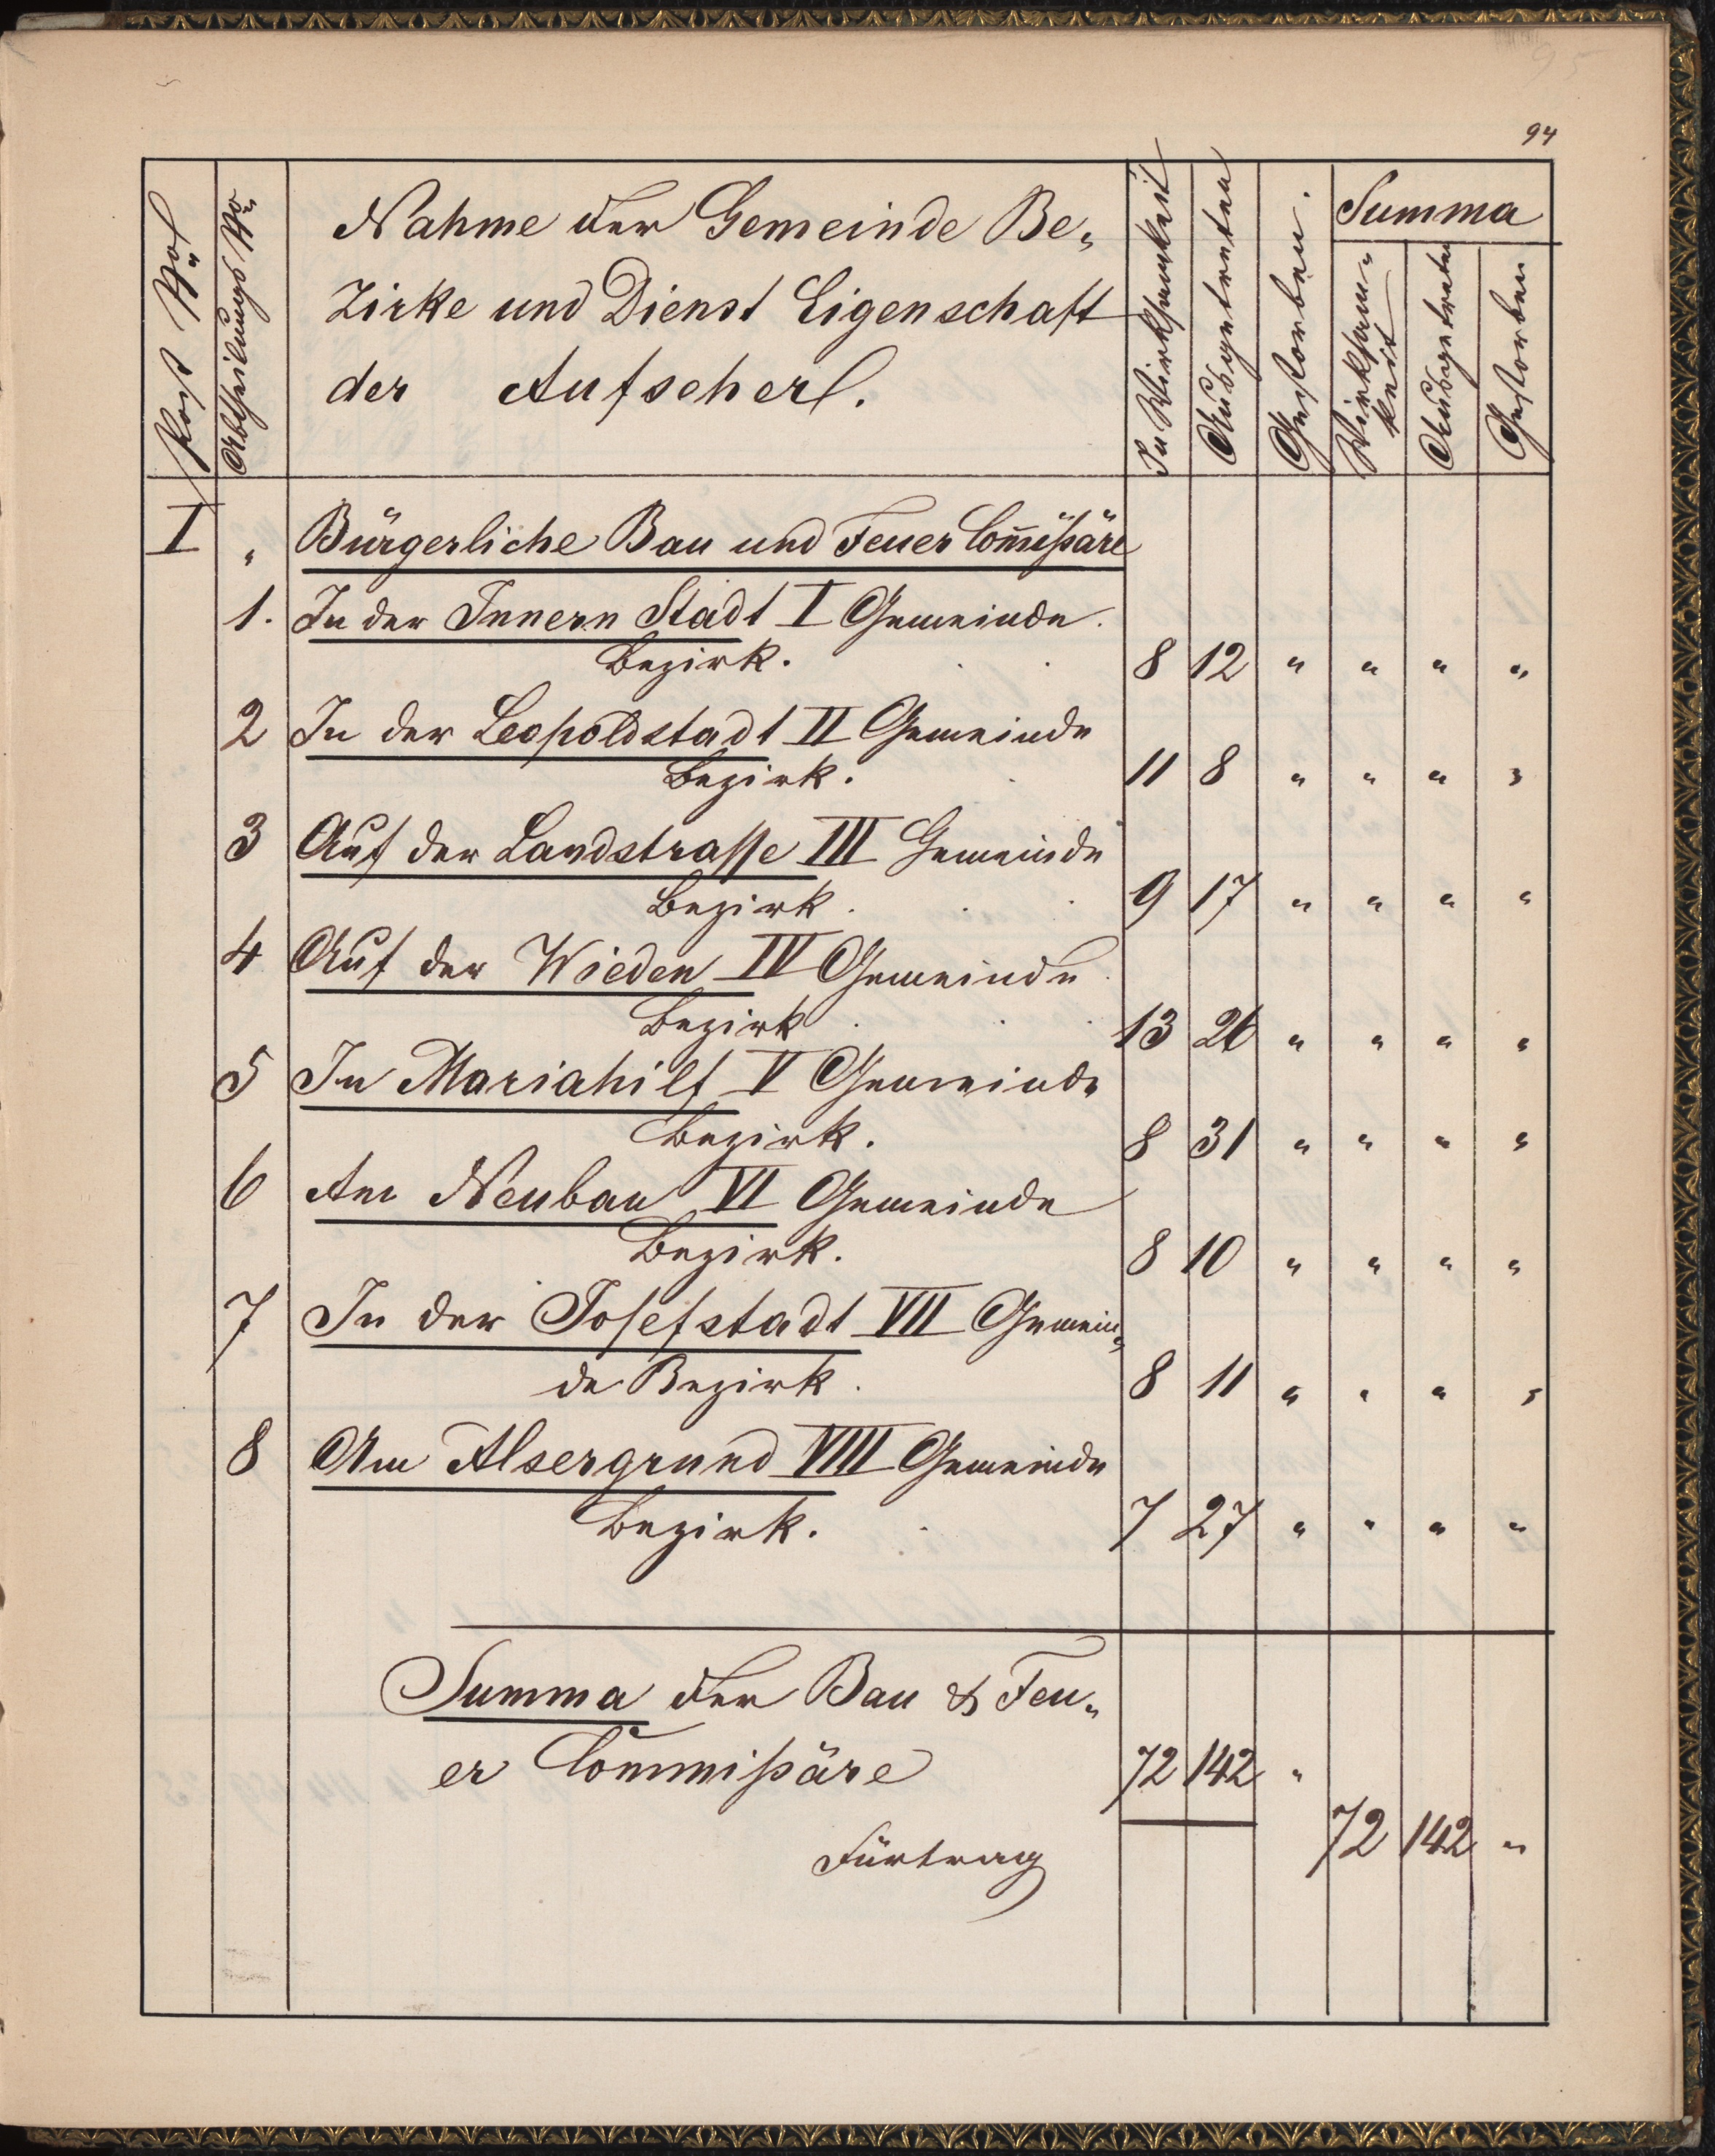 95
94
Post No
Abtheilungs No
Nahme der Gemeinde Be„
zirke und Dienst Eigenschaft
der Aufseher.
In Wirksamkeit
Ausgetreten
Gestorben.
Summa
Wirksam„
keit
Ausgetreten
Gestorben
I „ Bürgerliche Bau und Feuer Com̄ißäre
1. In der Innern Stadt I Gemeinde
Bezirk. 8 12 „ „ „ „
2 In der Leopoldstadt II Gemeinde
Bezirk. 11 8 „ „ „ „
3 Auf der Landstrasse III Gemeinde
Bezirk. 9 17 „ „ „ „
4 Auf der Wieden IV Gemeinde
Bezirk 13 26 „ „ „ „
5 In Mariahilf V Gemeinde
Bezirk. 8 31 „ „ „ „
6 Am Neubau VI Gemeinde
Bezirk. 8 10 „ „ „ „
7 In der Josefstadt VII Gemein„
de Bezirk. 8 11 „ „ „ „
8 Am Alsergrund VIII Gemeinde
Bezirk. 7 27 „ „ „ „
Summa der Bau & Feu„
er Commißäre 72 142 „
Fürtrag 72 142 „